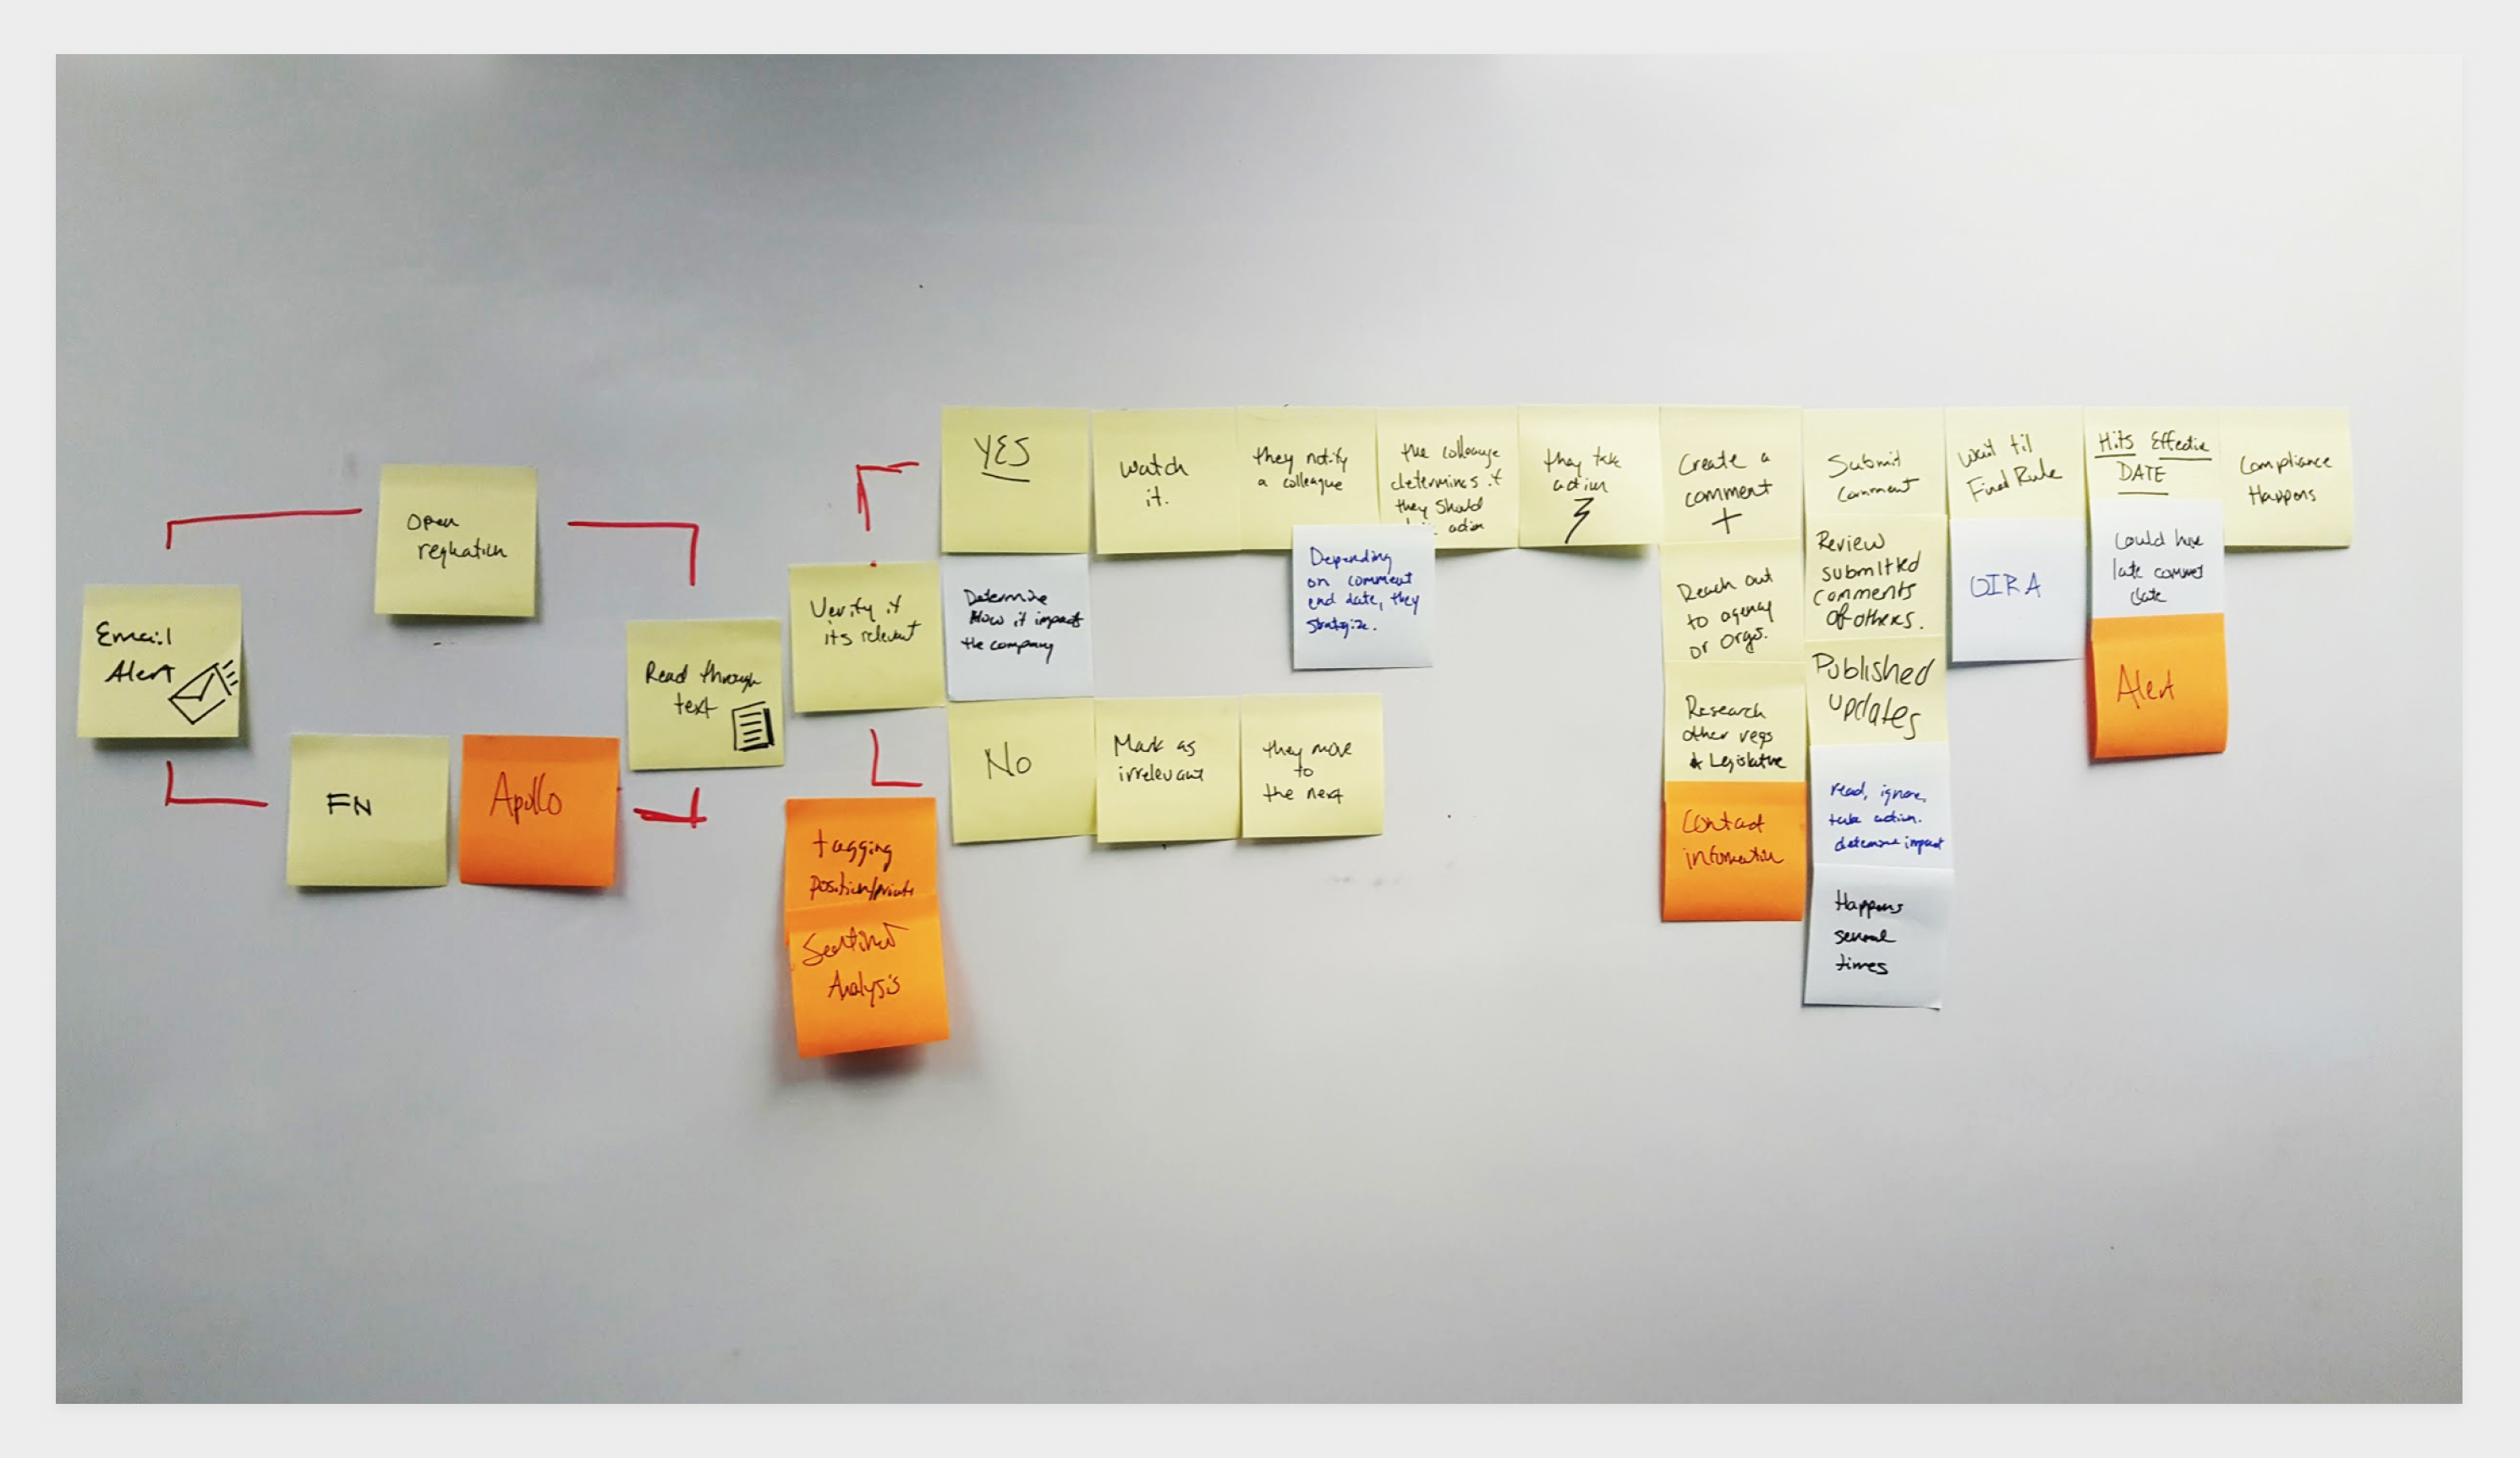 Email
Alert
Open
regulation
FN
Apollo
Read through
text
Verify if
its relevant
tagging
Position/private
Sentiment
Analysis
YES
Determine
How it impacts
the company
No
watch
it.
Mark as
irrelevant
they notify
a colleague
they move
to
the next
the colleague
determines if
they should
action
Depending
on comment
end date, they
strategize.
they take
action
Create a
comment
+
Reach out
to agency
or orgs.
Research
other regs
& Legislative
Contact
information
Submit
Comment
Review
submitted
comments
of others.
Published
updates
read, ignore,
take action.
determine impact
Happens
several
times
Wait til
Final Rule
OIRA
Hits Effective
DATE
Could have
late comment
date
Alert
Compliance
Happens